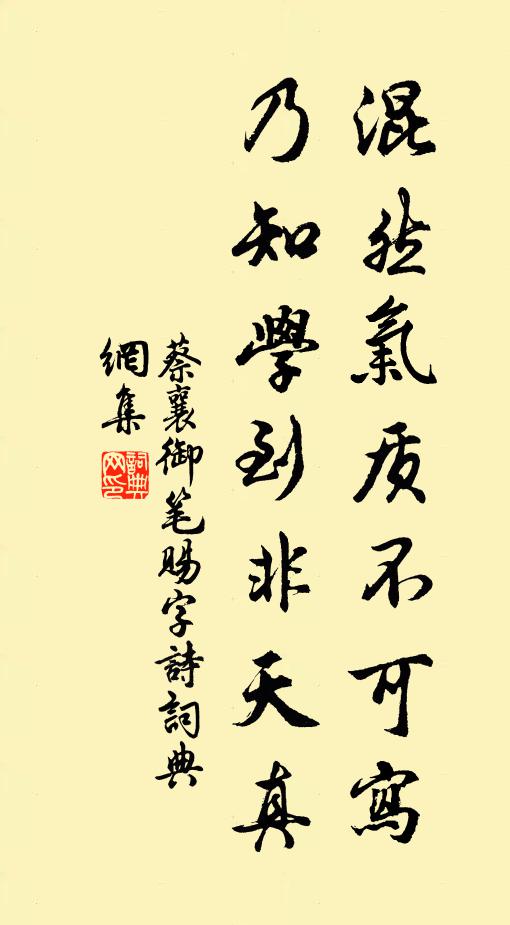 混然氣质不可寫
乃知學到非天真
蔡襄御笔賜字詩詞典
網集
詞典
网印